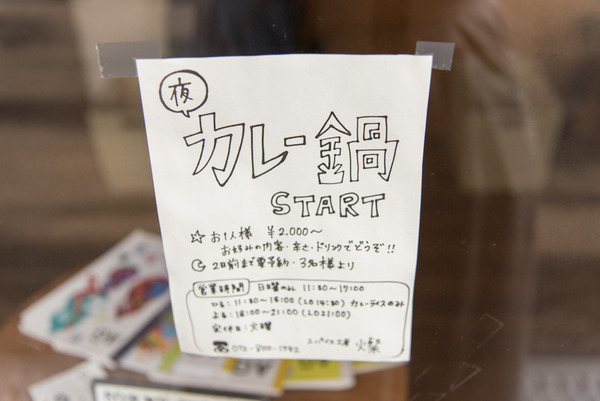 夜
カレー鍋
START
☆ お1人様 ¥2,000〜
お好みの内容・辛さ・ドリンクでどうぞ!!
2日前まで要予約・3名様より
営業時間 日曜のみ 11:30〜17:00
ひる:11:30〜15:00 (LO14:30) カレーライスのみ
よる:18:00〜21:00 (LO21:00)
定休日:火曜
スパイス工房 燦